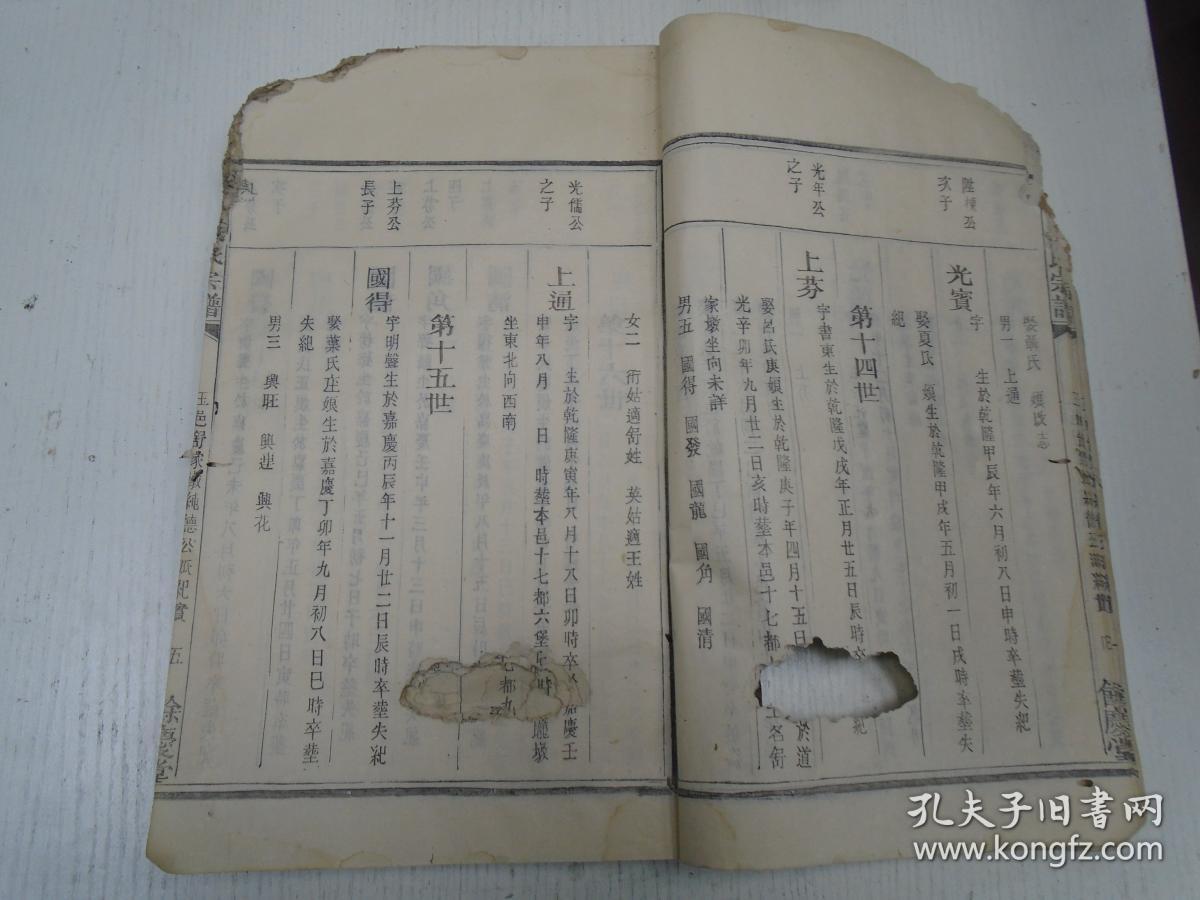 氏宗譜
餘慶堂
陞棟公
次子
娶葉氏
男一 上通
光賓
字 生於乾隆甲辰年六月初八日申時卒塟失紀
娶夏氏 娘生於乾隆甲戌年五月初一日戌時卒塟失
紀
第十四世
光年公
之子
上芬
字書東生於乾隆戊戌年正月廿五日辰時卒
紀
娶呂氏庚娘生於乾隆庚子年四月十五日
於道
光辛卯年九月廿二日亥時塟本邑十七都
土名舒
家墩坐向未詳
男五 國得 國發 國龍 國角 國清
女二 衍姑適舒姓 英姑適王姓
光儒公
之子
上通
字 生於乾隆庚寅年八月十八日卯時卒
嘉慶壬
申年八月
日 時塟本邑十七都六堡
坐東北向西南
七都九
第十五世
上芬公
長子
國得
字明聲生於嘉慶丙辰年十一月廿二日辰時卒塟失紀
娶葉氏庄娘生於嘉慶丁卯年九月初八日巳時卒塟
失紀
男三 興旺 興進 興花
宗譜
玉邑舒家墩純德公派紀實 五
餘慶堂
孔夫子旧书网
www.kongfz.com